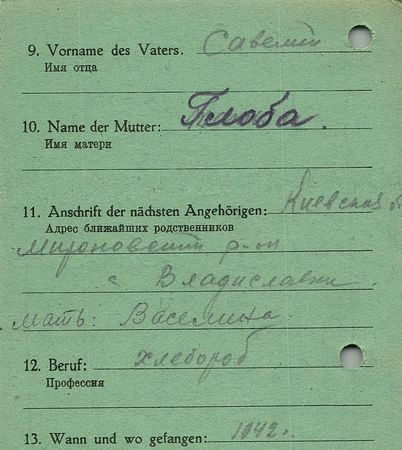 9. Vorname des Vaters. Савелий
Имя отца
10. Name der Mutter: Глоба.
Имя матери
11. Anschrift der nächsten Angehörigen: Киевская о
Адрес ближайших родственников
Мироновский р-он
с Владиславка
Мать: Васелина.
12. Beruf: хлебороб
Профессия
13. Wann und wo gefangen: 1942г.